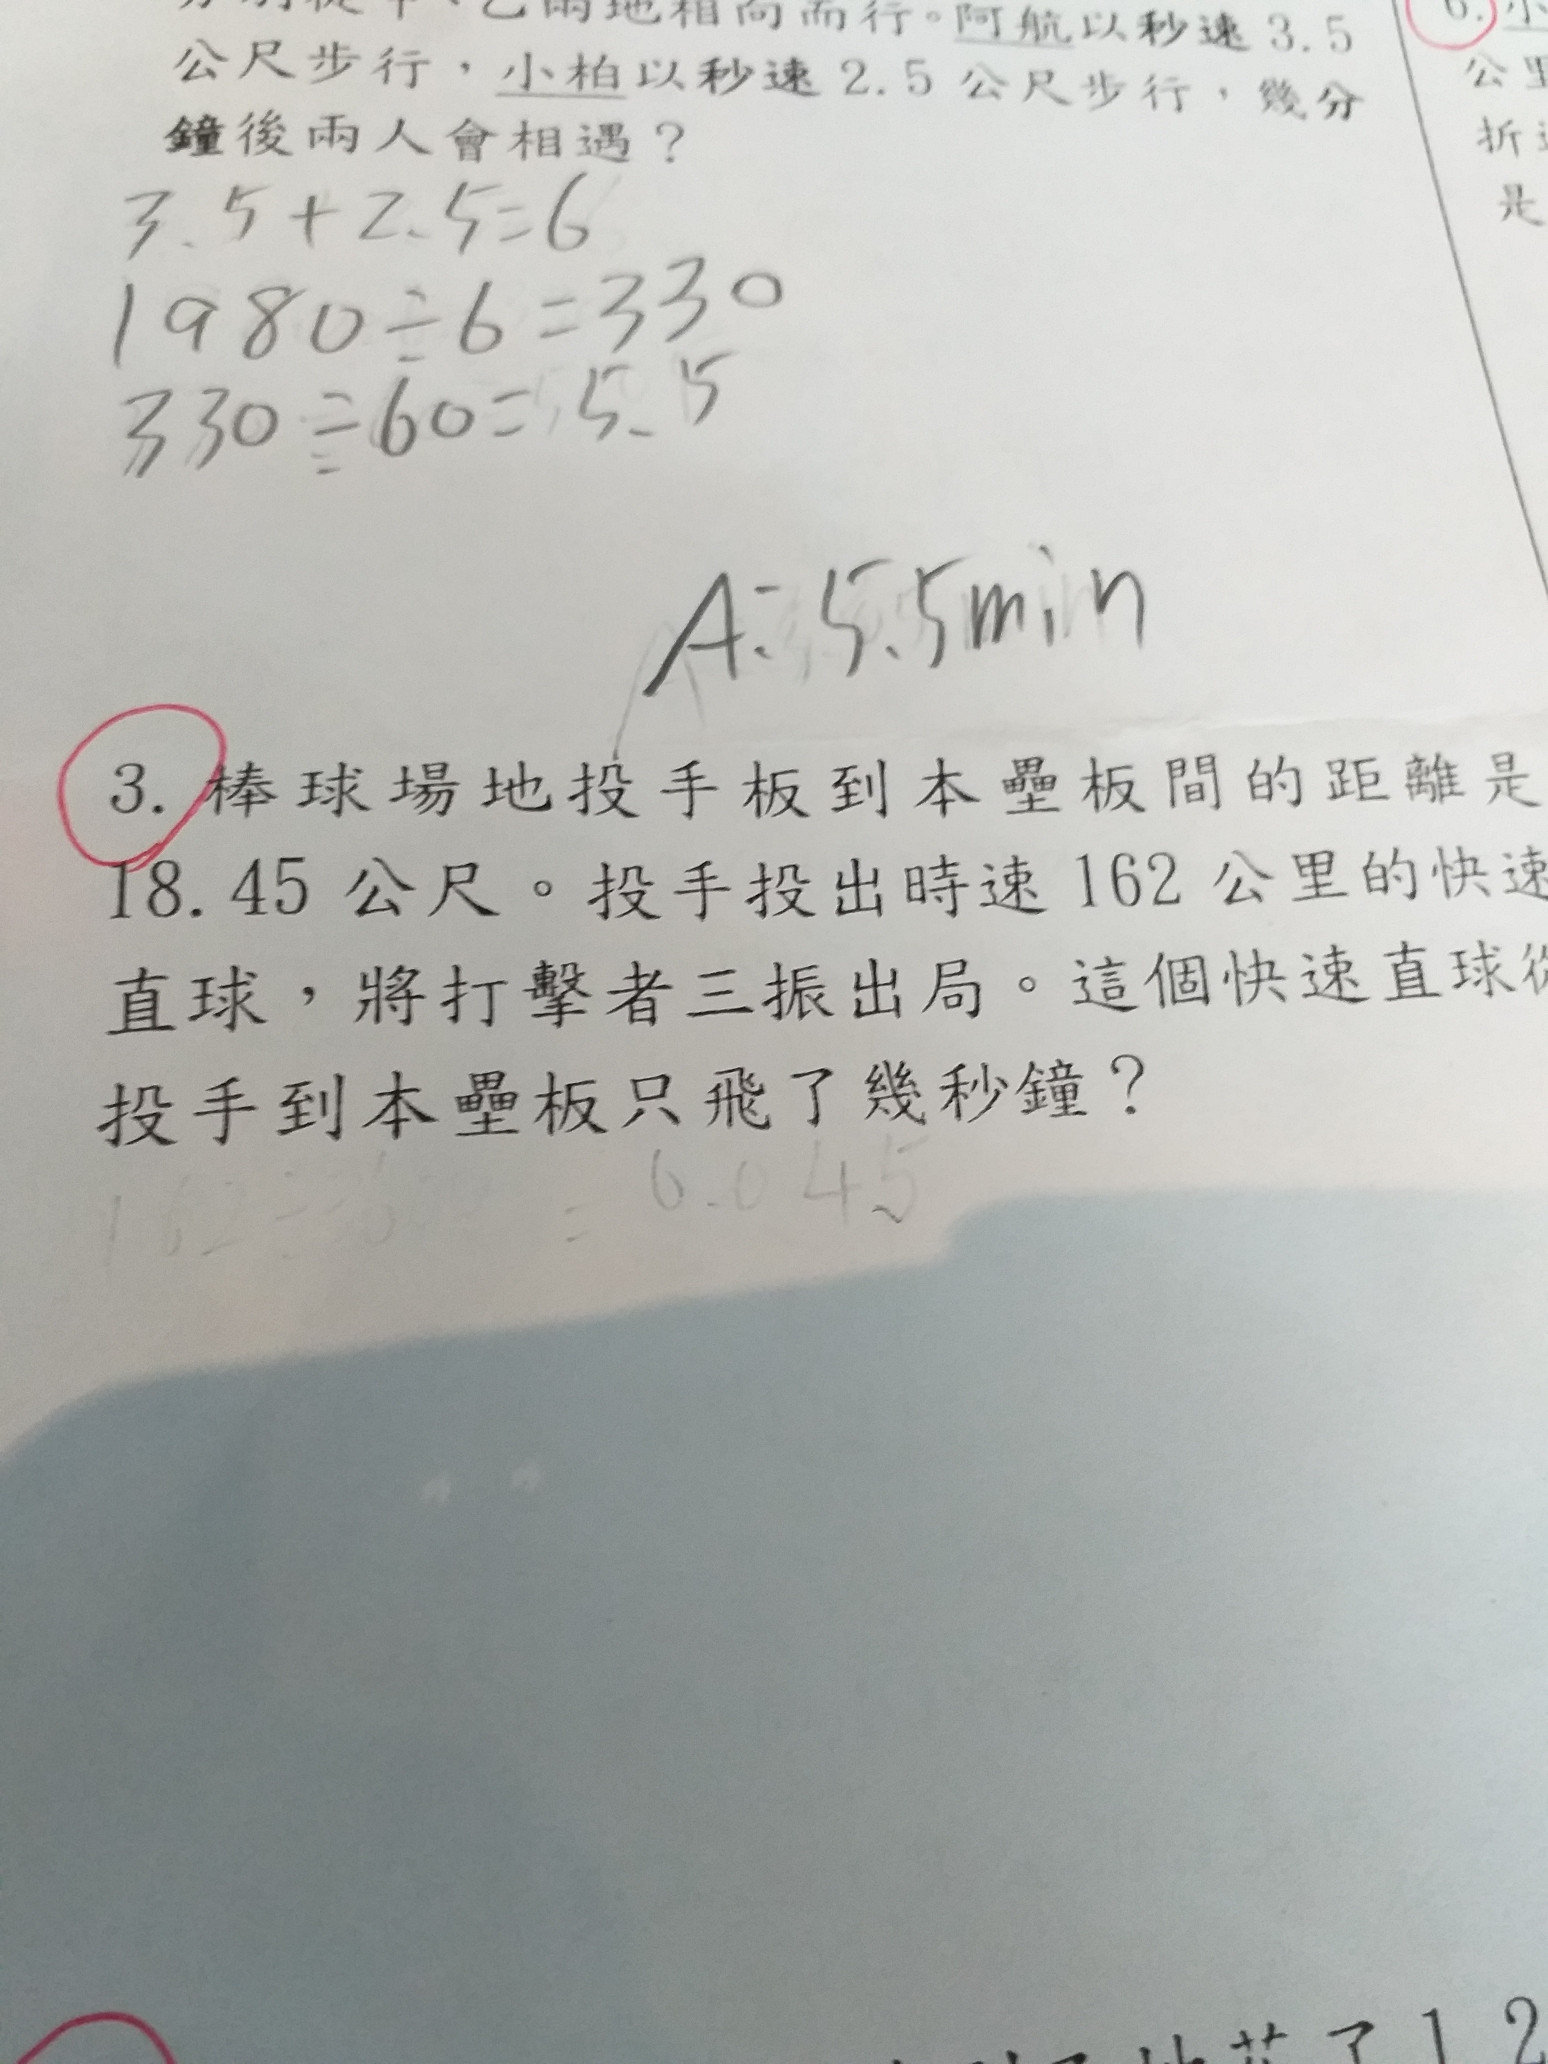 乙兩地相向而行。阿航以秒速3.5
公尺步行，小柏以秒速2.5公尺步行，幾分
鐘後兩人會相遇？
3.5+2.5=6
1980÷6=330
330÷60=5.5
A:5.5min
3.棒球場地投手板到本壘板間的距離是
18.45公尺。投手投出時速162公里的快速
直球，將打擊者三振出局。這個快速直球從
投手到本壘板只飛了幾秒鐘？
162÷ = 0.045
花了12
6.小
公里
折
是